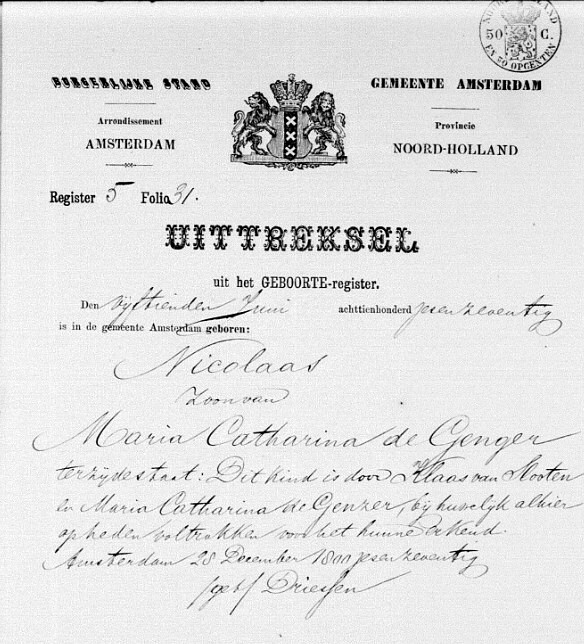 NOORD-HOLLAND
50 C.
EN 50 OPCENTEN
BURGERLIJKE STAND
GEMEENTE AMSTERDAM
Arrondissement
AMSTERDAM
Provincie
NOORD-HOLLAND
Register 5 Folio 31.
UITTREKSEL
uit het GEBOORTE-register.
Den vijftienden Juni achttienhonderd zesenzeventig
is in de gemeente Amsterdam geboren:
Nicolaas
Zoon van
Maria Catharina de Genger
terzijde staat: Dit kind is door Klaas van Slooten
en Maria Catharina de Genzer, bij huwelijk alhier
op heden voltrokken voor het hunne erkend.
Amsterdam 28 December 1800 zesenzeventig
(get) Driessen